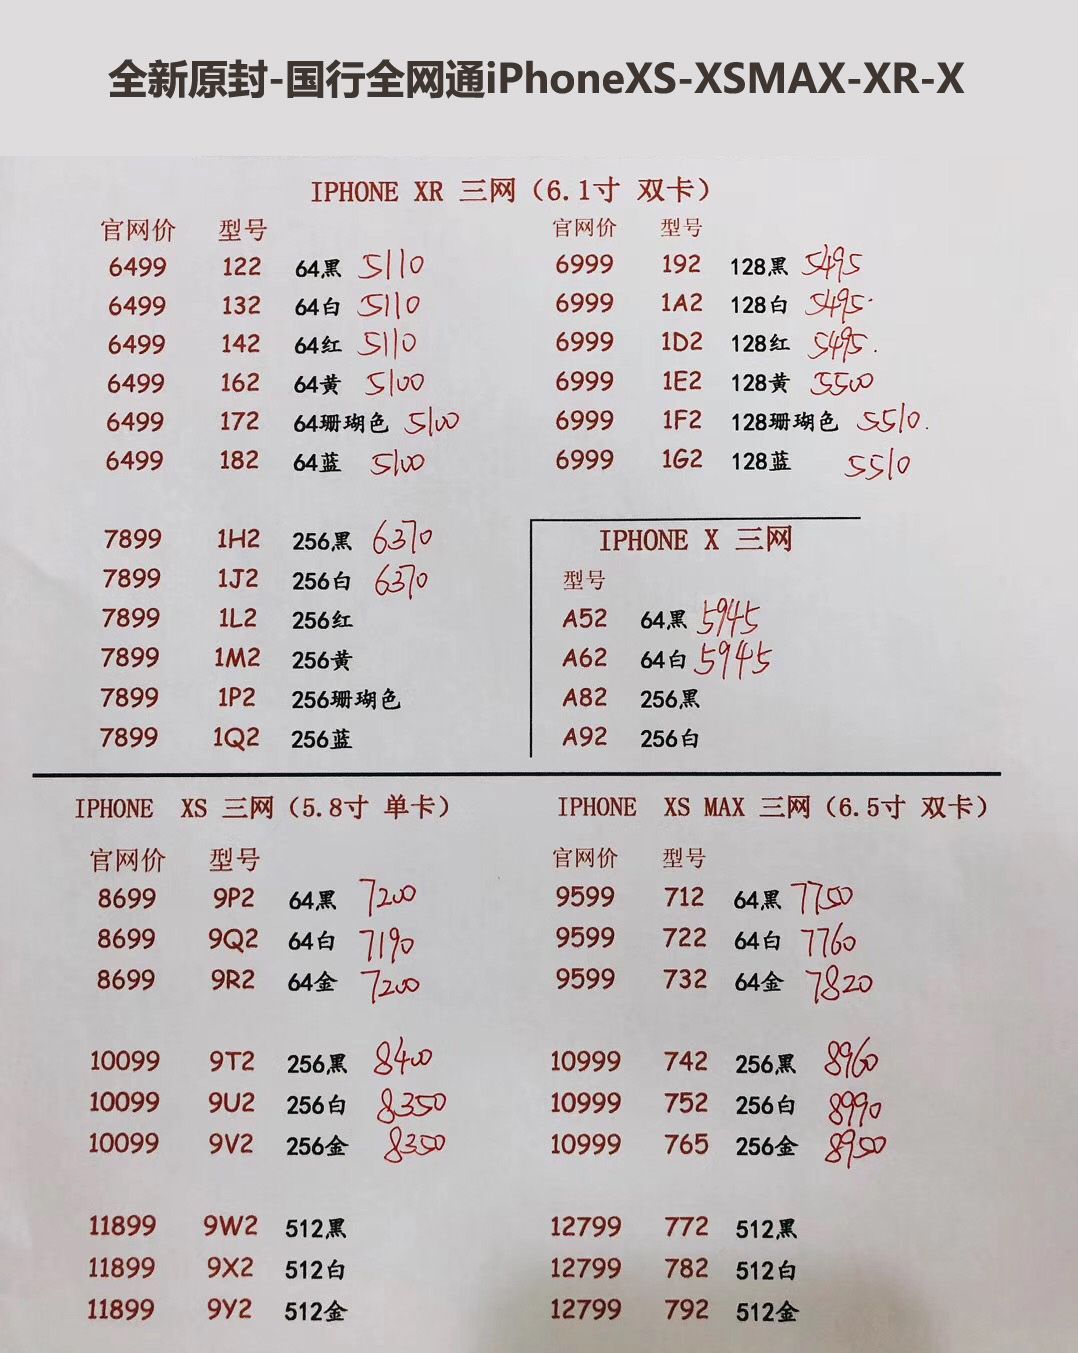 全新原封-国行全网通iPhoneXS-XSMAX-XR-X
IPHONE XR 三网（6.1寸 双卡）
官网价 型号
6499 122 64黑 5110
6499 132 64白 5110
6499 142 64红 5110
6499 162 64黄 5100
6499 172 64珊瑚色 5100
6499 182 64蓝 5100
官网价 型号
6999 192 128黑 5495
6999 1A2 128白 5495
6999 1D2 128红 5495.
6999 1E2 128黄 5500
6999 1F2 128珊瑚色 5510.
6999 1G2 128蓝 5510
7899 1H2 256黑 6370
7899 1J2 256白 6370
7899 1L2 256红
7899 1M2 256黄
7899 1P2 256珊瑚色
7899 1Q2 256蓝
IPHONE X 三网
型号
A52 64黑 5945
A62 64白 5945
A82 256黑
A92 256白
IPHONE XS 三网（5.8寸 单卡）
官网价 型号
8699 9P2 64黑 7200
8699 9Q2 64白 7190
8699 9R2 64金 7200
10099 9T2 256黑 8400
10099 9U2 256白 8350
10099 9V2 256金
11899 9W2 512黑
11899 9X2 512白
11899 9Y2 512金
IPHONE XS MAX 三网（6.5寸 双卡）
官网价 型号
9599 712 64黑 7750
9599 722 64白 7760
9599 732 64金 7820
10999 742 256黑 8960
10999 752 256白 8990
10999 765 256金 8950
12799 772 512黑
12799 782 512白
12799 792 512金